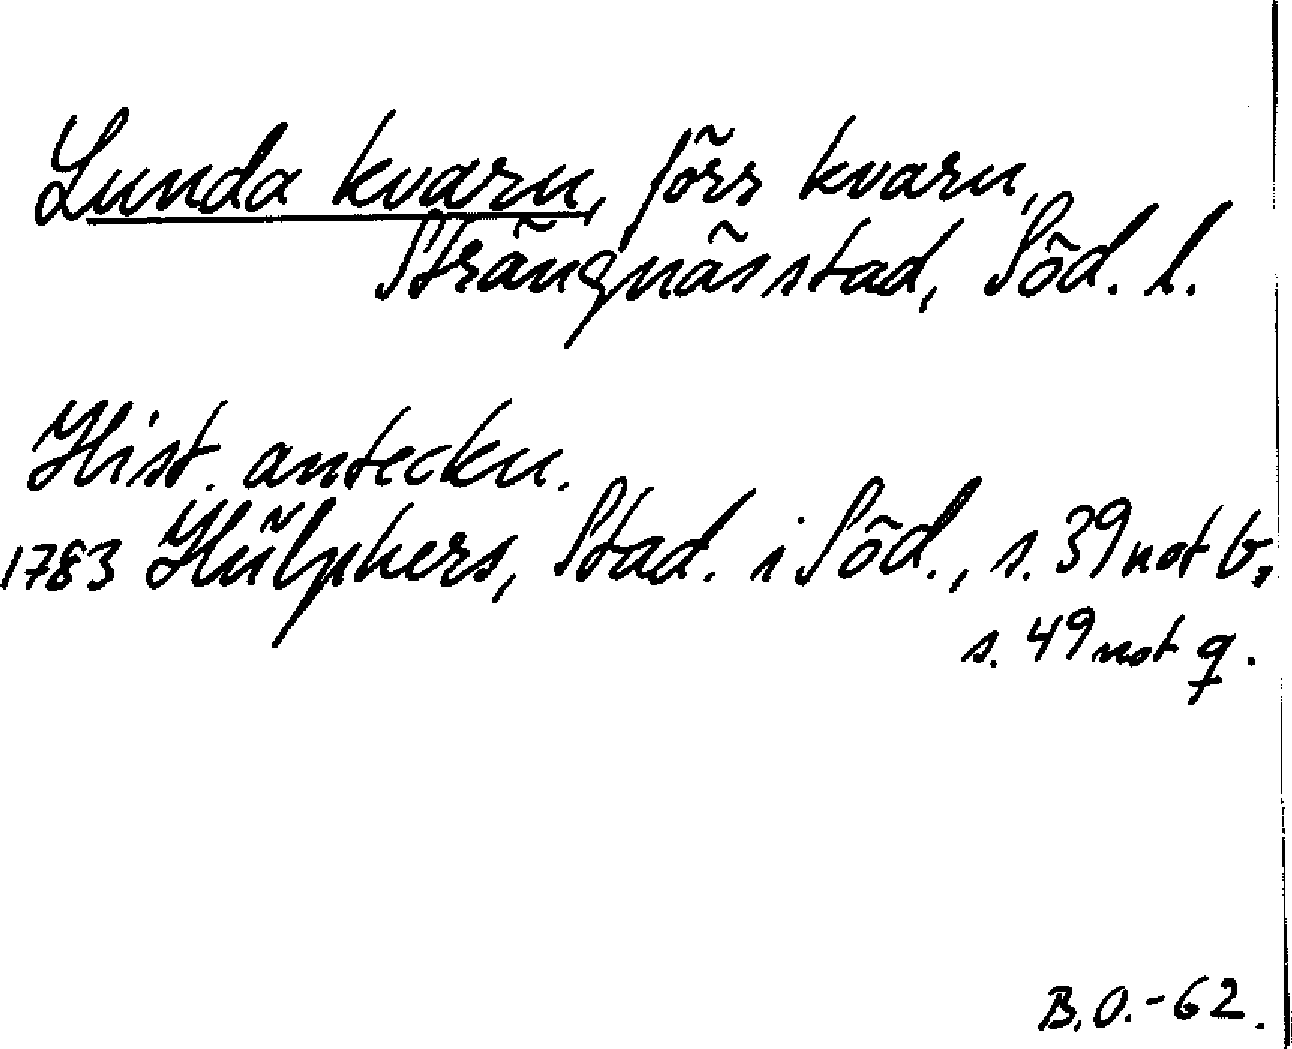 Lunda kvarn, förr kvarn,
Strängnäs stad, Söd. l.
Hist. anteckn.
1783 Hülphers, Städ. i Söd., s. 39 not b,
s. 49 not q.
B.O.-62.